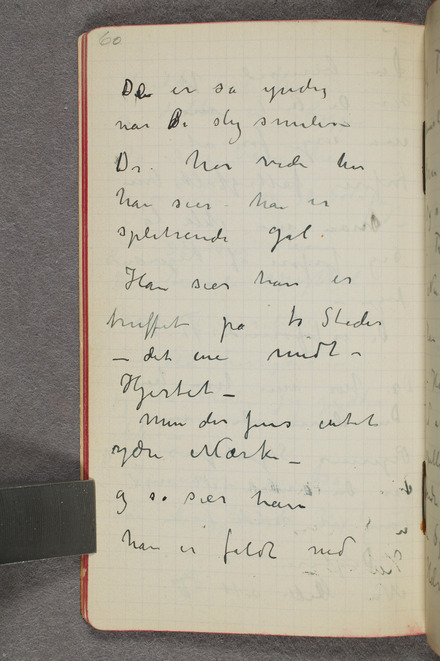 60
De er så yndig
når De slig smiler
Dr. har vidt hvi
han sier han er
splitrende gal.
Han sier han er
truffet på to Steder
– det ene midt –
Hjertet –
Men der fins intet
ydre Mærke –
og so sier han
han er faldt ned